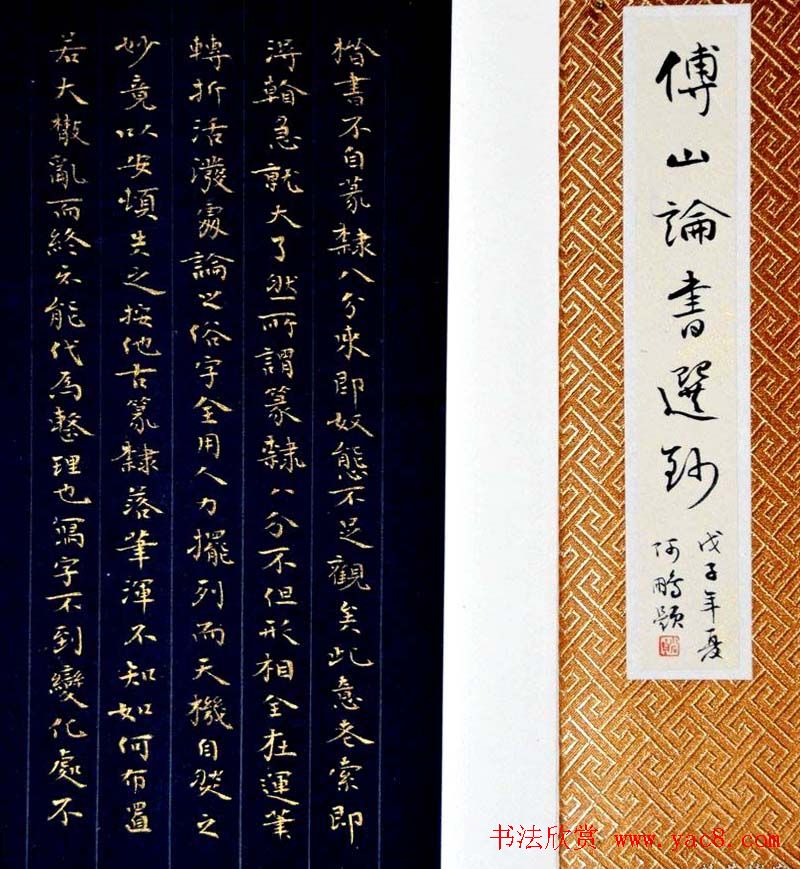 傅山論書選鈔
戊子年夏
阿鵬題
楷書不自篆隸八分來即奴態不足觀矣此意老索即
得翰急就大了然所謂篆隸八分不但形相全在運筆
轉折活潑處論之俗字全用人力擺列而天機自然之
妙竟以安頓失之按他古篆隸落筆渾不知如何布置
若大散亂而終不能代為整理也寫字不到變化處不
书法欣赏 www.yac8.com